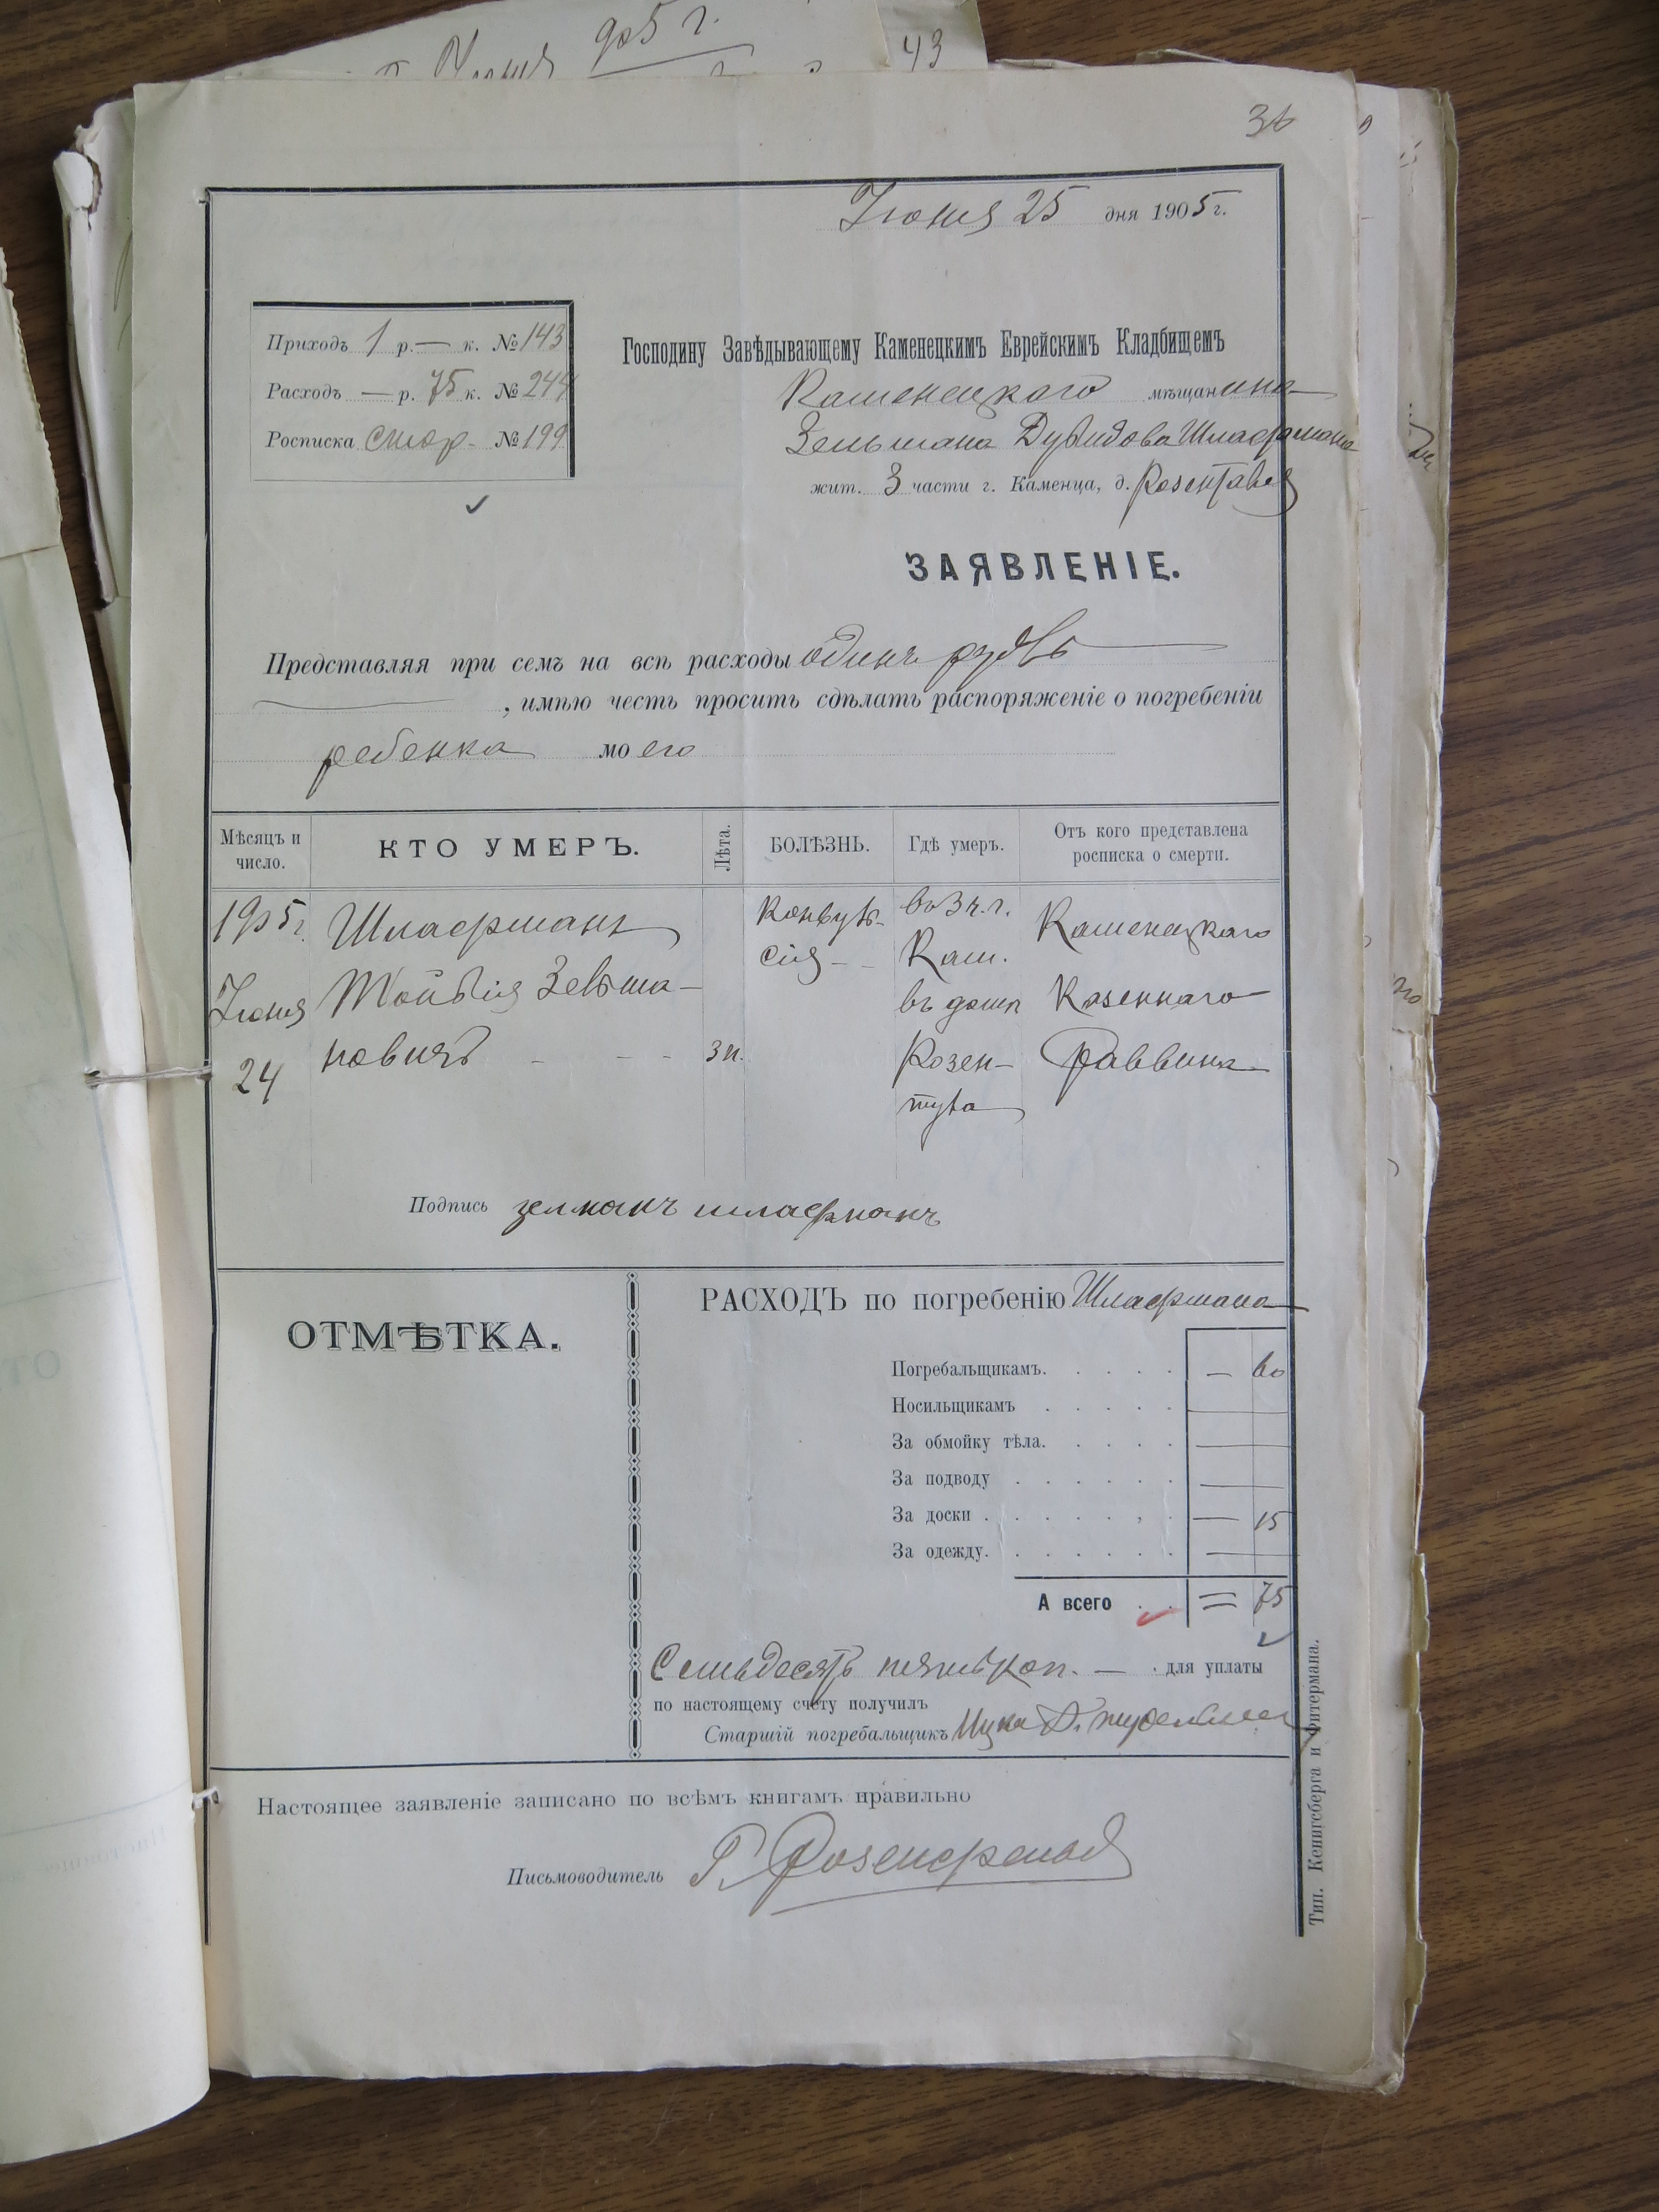 905 г.
Июня
43
36
Июня 25 дня 1905 г.
Приходъ 1 р. — к. № 143
Расходъ — р. 75 к. № 244
Росписка стар. № 199
Господину Завѣдывающему Каменецкимъ Еврейскимъ Кладбищемъ
Каменецкаго мѣщанина
Зельмана Дувидова Шлафмана
жит. 3 части г. Каменца, д.
ЗАЯВЛЕНІЕ.
Представляя при семъ на всѣ расходы одинъ рубль
, имѣю честь просить сдѣлать распоряженіе о погребеніи
ребенка моего
Мѣсяцъ и число. КТО УМЕРЪ. Лѣта. БОЛѢЗНЬ. Гдѣ умеръ. Отъ кого представлена росписка о смерти.
1905 г. Шлафманъ Конвуль- во 3 ч. г. Каменецкаго
Июня Зельма- сія Кам. Казеннаго
24 новичъ 3 н. въ домѣ Раввина
Розен-
Подпись зелманъ шлафманъ
ОТМѢТКА.
РАСХОДЪ по погребенію Шлафмана
Погребальщикамъ. — 60
Носильщикамъ —
За обмойку тѣла. —
За подводу —
За доски — 15
За одежду. —
А всего = 75
Семьдесятъ пять коп. — для уплаты
по настоящему счету получилъ
Старшій погребальщикъ
Настоящее заявленіе записано по всѣмъ книгамъ правильно
Письмоводитель Г. Розенфельд
Тип. Кенигсберга и Фитермана.